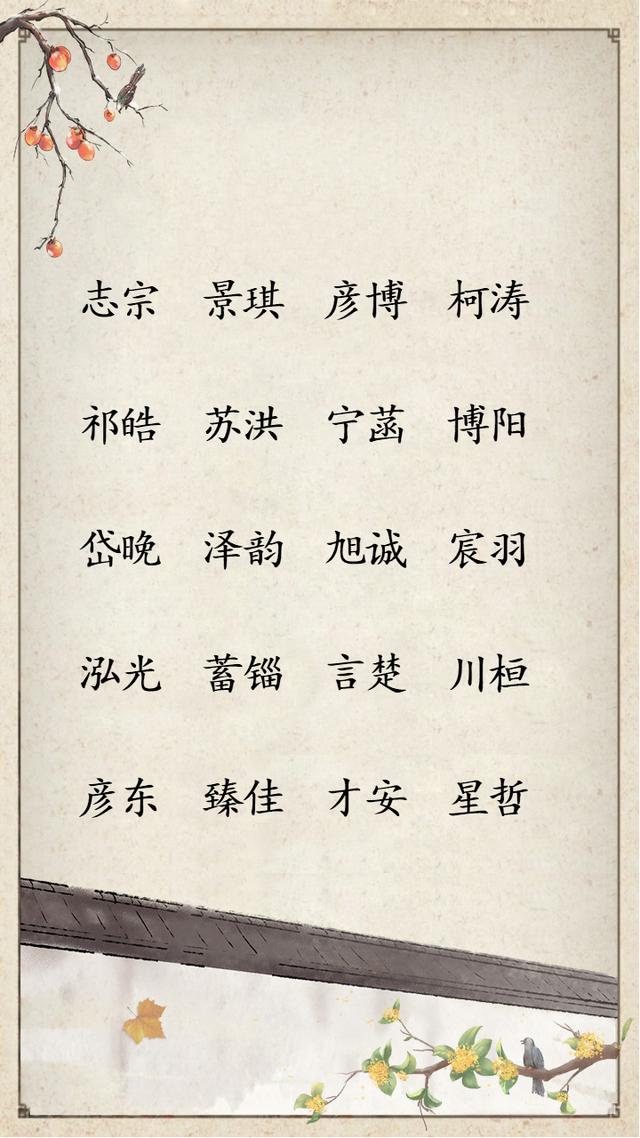 志宗 景琪 彦博 柯涛
祁皓 苏洪 宁菡 博阳
岱晚 泽韵 旭诚 宸羽
泓光 蓄锱 言楚 川桓
彦东 臻佳 才安 星哲